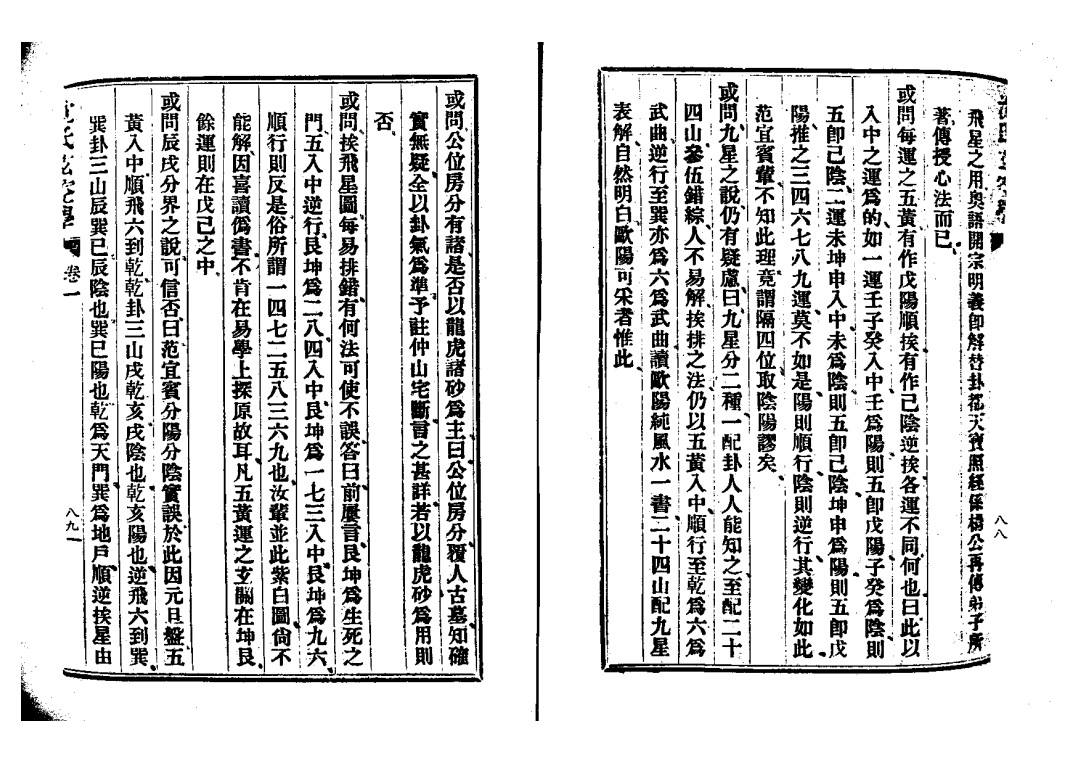 飛星之用奧語開宗明義卽解替卦都天寶照經係楊公再傳弟子所
著、傳授心法而已、
或問每運之五黃有作戊陽順挨、有作己陰逆挨、各運不同何也曰此以
入中之運爲的、如一運壬子癸入中、壬爲陽則五卽戊陽、子癸爲陰、則
五卽己陰、二運未坤申入中、未爲陰則五卽己陰、坤申爲陽則五卽戊
陽、推之三四六七八九運、莫不如是、陽則順行、陰則逆行、其變化如此、
范宜賓輩不知此理、竟謂隔四位取陰陽、謬矣、
或問九星之說、仍有疑慮、曰九星分二種、一配卦人人能知之、至配二十
四山、參伍錯綜、人不易解、挨排之法、仍以五黃入中、順行至乾爲六、爲
武曲、逆行至巽、亦爲六、爲武曲、讀歐陽純風水一書、二十四山配九星
表解、自然明白、歐陽可采者惟此、
八八
或問公位房分有諸、是否以龍虎諸砂爲主、曰公位房分、覆人古墓、知確
實無疑、全以卦氣爲準、予註仲山宅斷、言之甚詳、若以龍虎砂爲用則
否、
或問挨飛星圖、每易排錯、有何法可使不誤、答曰前屢言艮坤爲生死之
門、五入中逆行、艮坤爲二八、四入中、艮坤爲一七、三入中、艮坤爲九六、
順行則反是、俗所謂一四七二五八三六九也、汝輩並此紫白圖、尙不
能解、因喜讀僞書、不肯在易學上探原故耳、凡五黃運之玄關在坤艮、
餘運則在戊己之中、
或問辰戌分界之說、可信否、曰范宜賓分陽分陰實誤於此、因元旦盤五
黃入中、順飛六到乾、乾卦三山戌乾亥、戌陰也、乾亥陽也、逆飛六到巽、
巽卦三山辰巽巳、辰陰也、巽巳陽也、乾爲天門、巽爲地戶、順逆挨星由
沈氏玄空學 卷一
八九